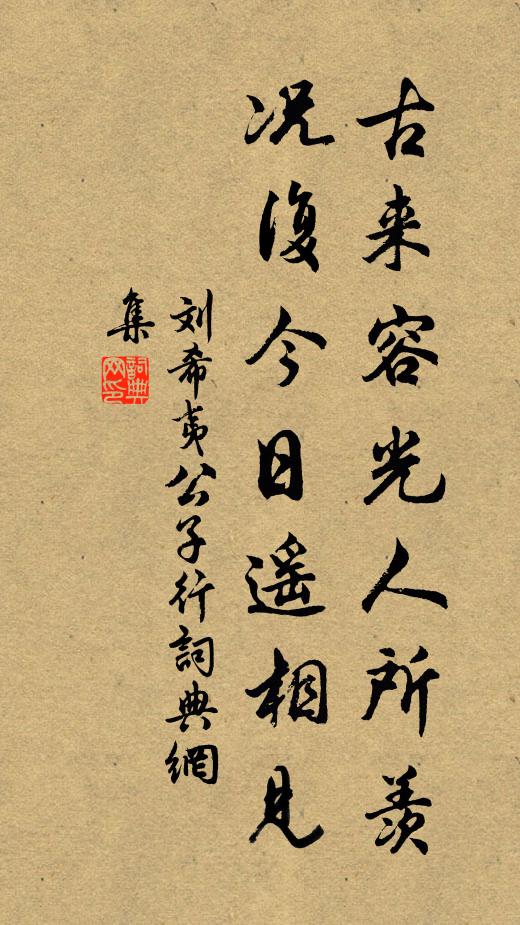 古来容光人所羡
况復今日遥相見
刘希夷公子行詞典網
集
詞典网印